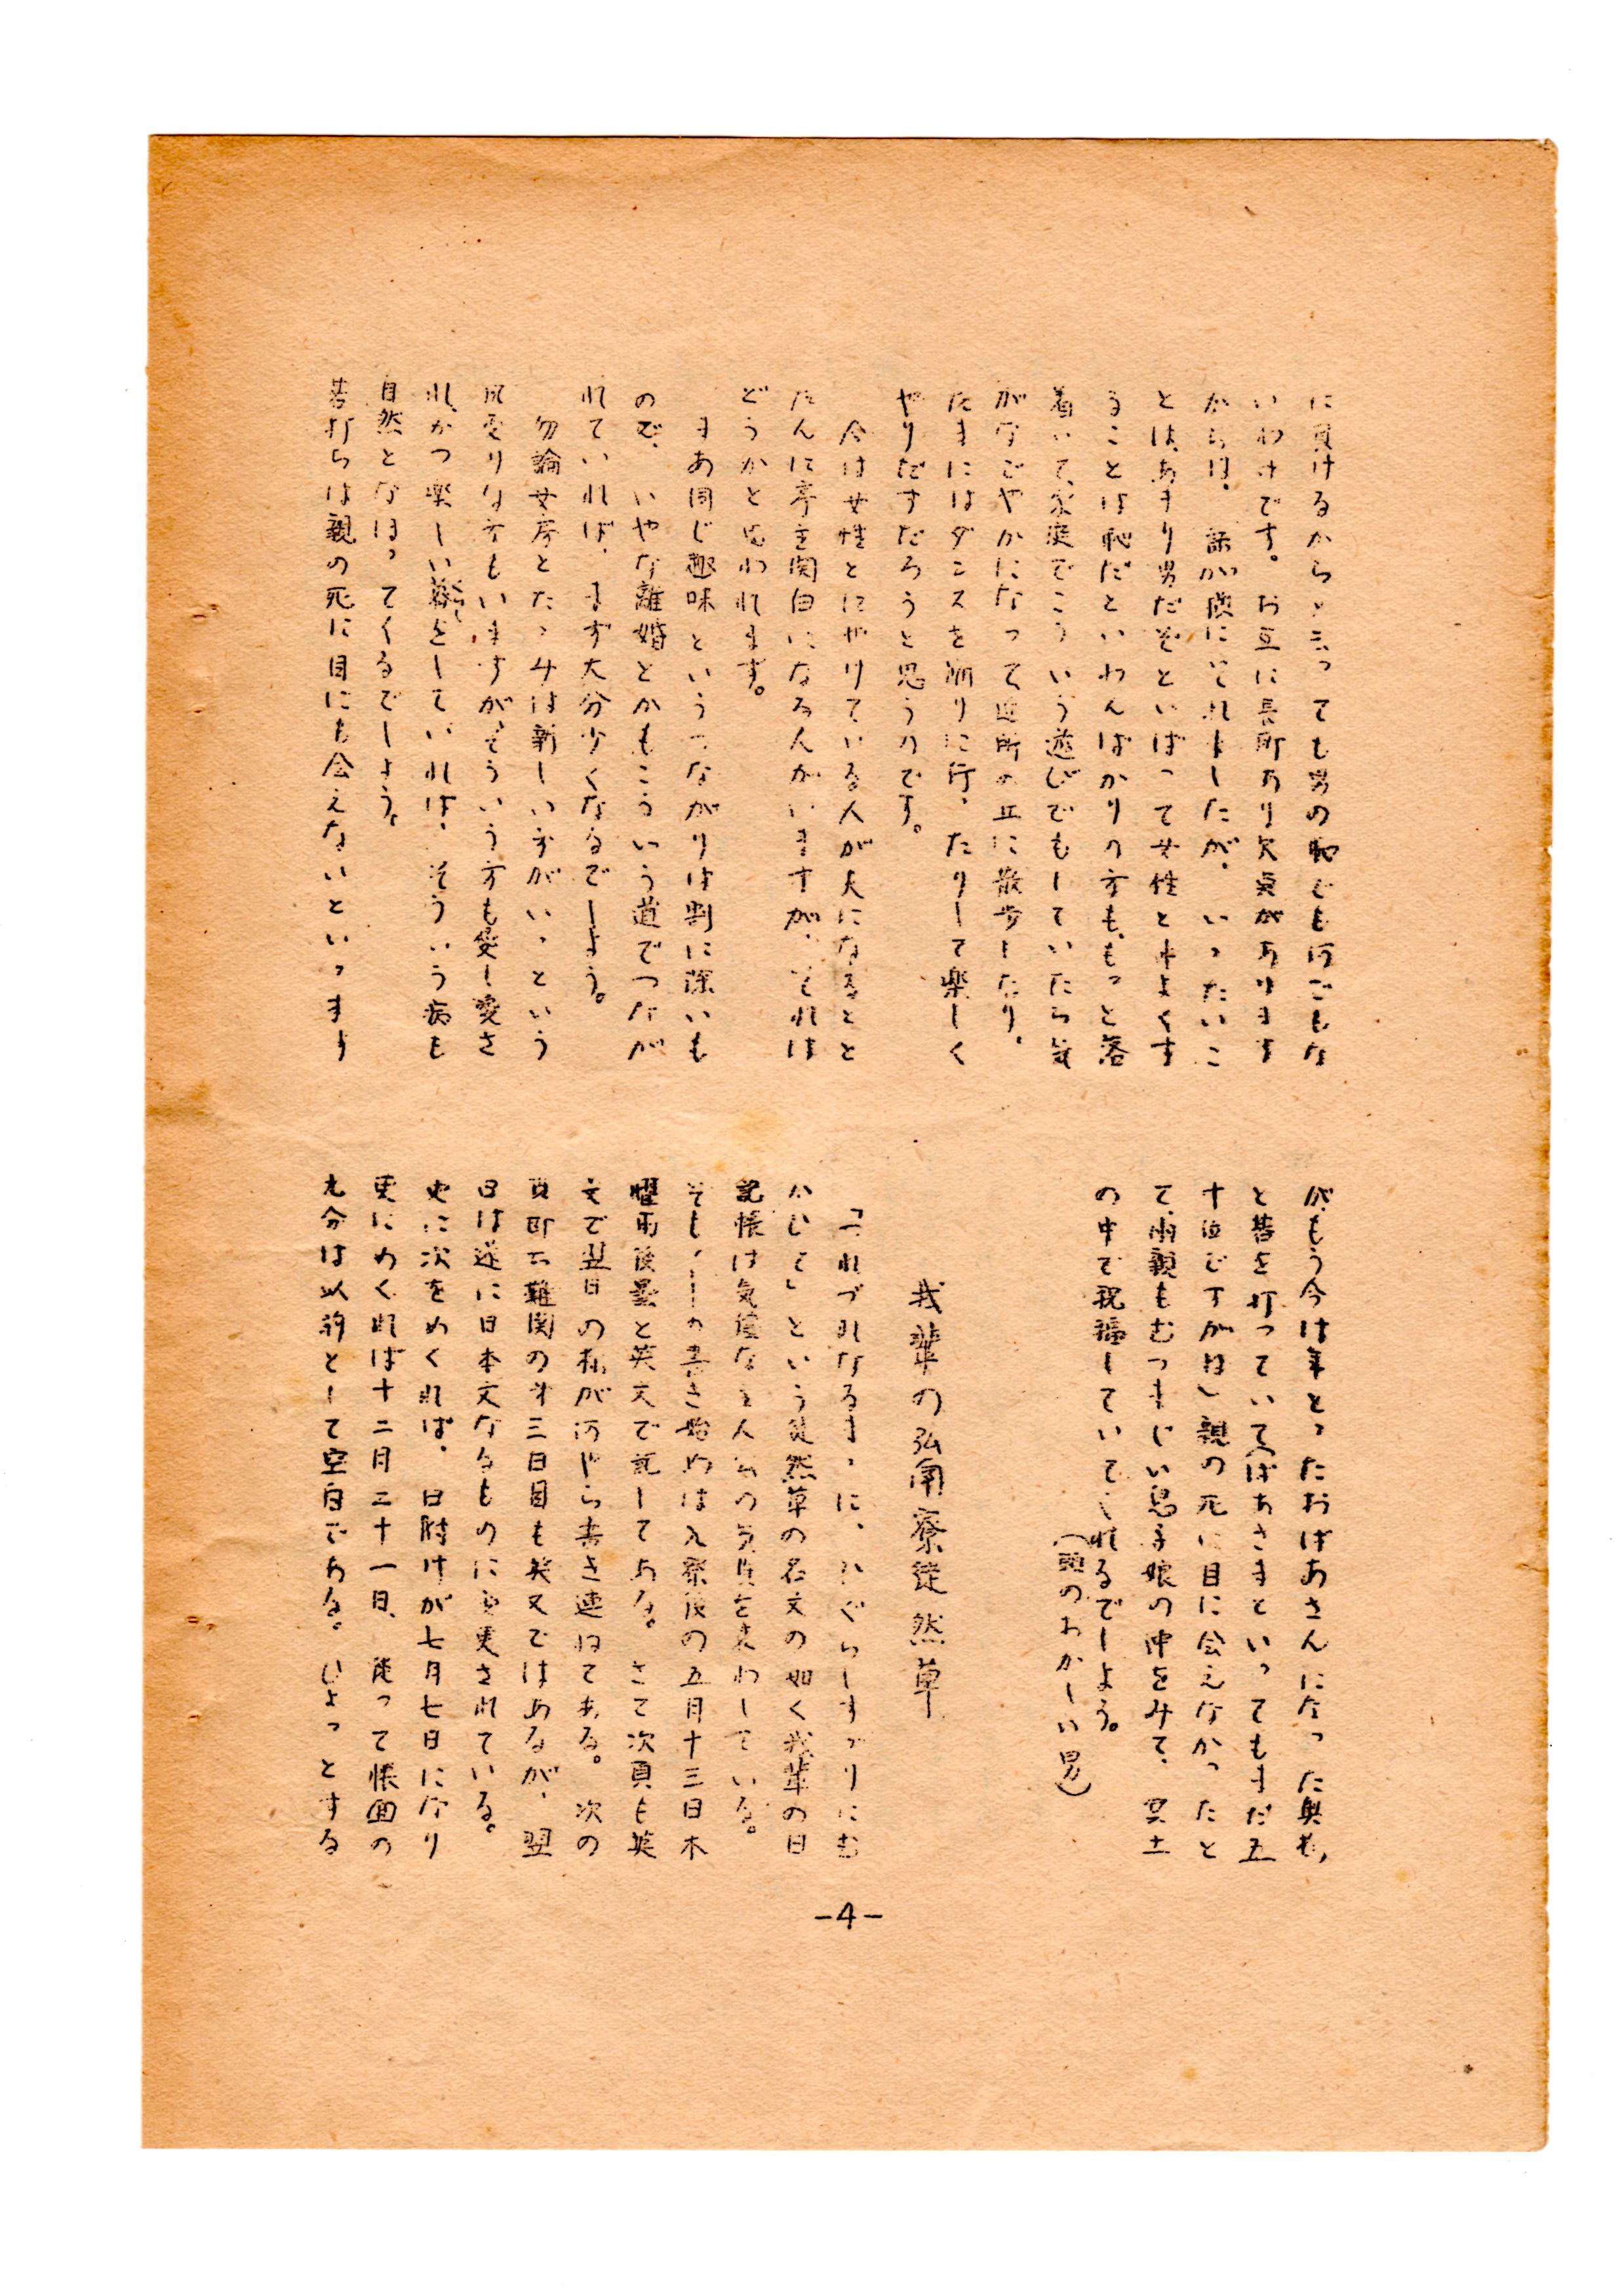 に負けるからと云っても男の恥でも何ごもな
いわけです。お互に長所あり欠点があります
からね。話が横にそれましたが、いったいこ
とは、あまり男だぞといばって女性と中よくす
ることは恥だといわんばかりの方も、もっと落
着いて、家庭でこういう遊びでもしていたら気
がなごやかになって近所の丘に散歩したり、
たまにはダンスを踊りに行ったりして楽しく
やりだすだろうと思うのです。
今は女性とにやりている人が夫になるとと
たんに亭主関白になる人がいますが、それは
どうかと思われます。
まあ同じ趣味というつながりは割に深いも
ので、いやな離婚とかもこういう道でつなが
れていれば、まず大分少くなるでしょう。
勿論女房とたゝみは新しい方がいゝという
風変りな方もいますが、そういう方も愛し愛さ
れ、かつ楽しい暮をしていれば、そういう病も
自然となほってくるでしょう。
碁打ちは親の死に目にも会えないといゝます
が、もう今は年とったおばあさんになった奥様、
と碁を打っていて(ばあさまといってもまだ五
十位ですがね)親の死に目に会えなかったと
て、両親もむつまじい息子娘の仲をみて、冥土
の中で祝福していてくれるでしょう。
(頭のおかしい男)
我輩の弘南寮徒然草
「つれづれなるまゝに、ひぐらしすゞりにむ
かひて」という徒然草の名文の如く我輩の日
記帳は気儘な主人公の気質を表わしている。
そもゝゝの書き始めは入寮後の五月十三日木
曜雨後曇と英文で記してある。さて次頁も英
文で翌日の私が何やら書き連ねてある。次の
頁即ち難関の才三日目も英文ではあるが、翌
日は遂に日本文なるものに変更されている。
更に次をめくれば、日附けが七月七日になり
更にめくれば十二月二十一日、従って帳面の
九分は以前として空白である。ひょっとする
-4-